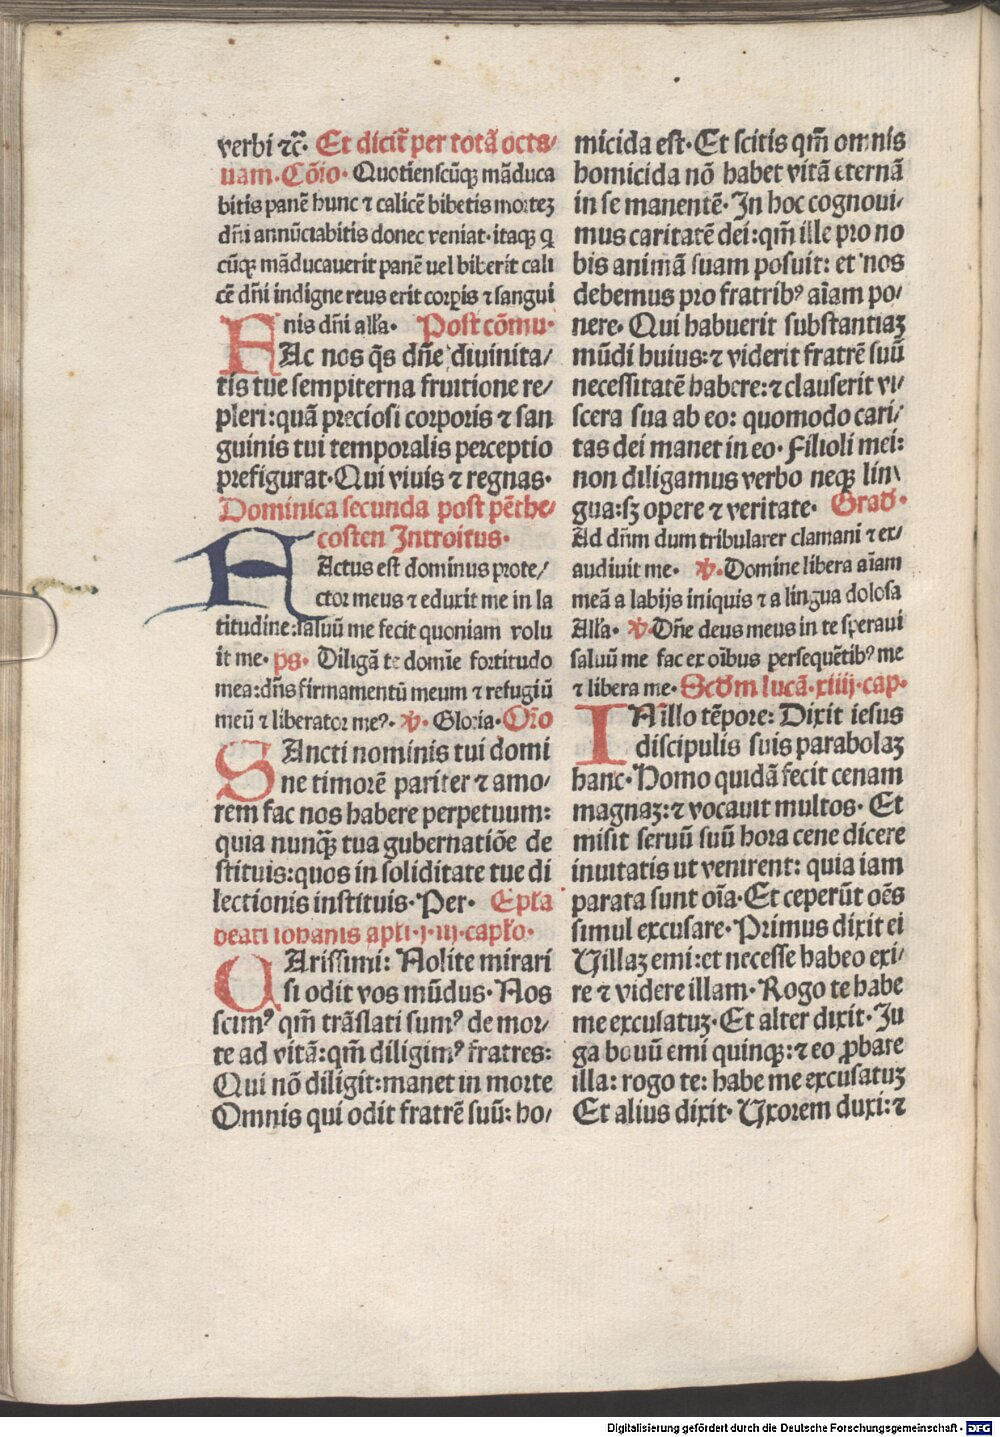 verbi ⁊c̄. Et dicit̄ per totā octa/
uam. Cōio. Quotienscūqꝫ māduca
bitis panē hunc ⁊ calicē bibetis morteꝫ
dn̄i annūciabitis donec veniat. itaqꝫ q̄
cūqꝫ māducauerit panē vel biberit cali
cē dn̄i indigne reus erit corꝑis ⁊ sangui
nis dn̄i all̄a. Post cōmu.
FAc nos q̄s dn̄e diuinita/
tis tue sempiterna fruitione re/
pleri: quā preciosi corporis ⁊ san
guinis tui temporalis perceptio
prefigurat. Qui viuis ⁊ regnas.
Dominica secunda post pēthe/
costen Introitus.
FActus est dominus prote/
ctor meus ⁊ eduxit me in la
titudine: saluū me fecit quoniam volu
it me. ps. Diligā te domīe fortitudo
mea: dn̄s firmamentū meum ⁊ refugiū
meū ⁊ liberator meꝰ. ℣. Gloria. Or̄o
SAncti nominis tui domi
ne timorē pariter ⁊ amo/
rem fac nos habere perpetuum:
quia nunqꝫ̄ tua gubernatiōe de
stituis: quos in soliditate tue di
lectionis instituis. Per. Epl̄a
beati iohanis apl̄i. j. iij. capl̄o.
CArissimi: Nolite mirari
si odit vos mūdus. Nos
scimꝰ qm̄ trāslati sumꝰ de mor/
te ad vitā: qm̄ diligimꝰ fratres:
Qui nō diligit: manet in morte
Omnis qui odit fratrē suū: ho/
micida est. Et scitis qm̄ omnis
homicida nō habet vitā eternā
in se manentē. In hoc cognoui/
mus caritatē dei: qm̄ ille pro no
bis animā suam posuit: et nos
debemus pro fratribꝰ aīam po/
nere. Qui habuerit substantiaꝫ
mūdi huius: ⁊ viderit fratrē suū
necessitatē habere: ⁊ clauserit vi/
scera sua ab eo: quomodo cari/
tas dei manet in eo. Filioli mei:
non diligamus verbo neqꝫ lin/
gua: sꝫ opere ⁊ veritate. Grad̄.
Ad dn̄m dum tribularer clamaui ⁊ ex/
audiuit me. ℣. Domine libera aīam
meā a labijs iniquis ⁊ a lingua dolosa
All̄a. ℣. Dn̄e deus meus in te speraui
saluū me fac ex oībus persequētibꝰ me
⁊ libera me. Scd̄m lucā. xiiij. cap.
IN illo tēpore: Dixit iesus
discipulis suis parabolaꝫ
hanc. Homo quidā fecit cenam
magnaꝫ: ⁊ vocauit multos. Et
misit seruū suū hora cene dicere
inuitatis ut venirent: quia iam
parata sunt oīa. Et ceperūt oēs
simul excusare. Primus dixit ei
Uillaꝫ emi: et necesse habeo exi/
re ⁊ videre illam. Rogo te habe
me excusatuꝫ. Et alter dixit. Ju
ga bouū emi quinqꝫ: ⁊ eo ꝓbare
illa: rogo te: habe me excusatuꝫ
Et alius dixit. Uxorem duxi: ⁊
Digitalisierung gefördert durch die Deutsche Forschungsgemeinschaft - DFG